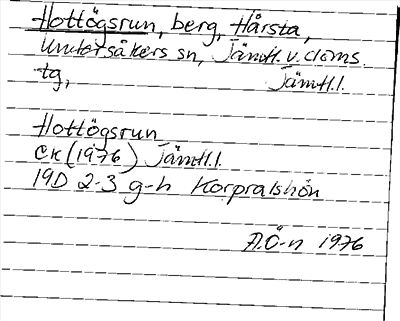 Hottögsrun, berg, Hårsta,
Undersåkers sn, Jämtl. v. doms.
tg, Jämtl.l.
Hottögsrun
CK (1976) Jämtl.l.
19D 2-3 g-h Korpralshön
A.Ö-n 1976